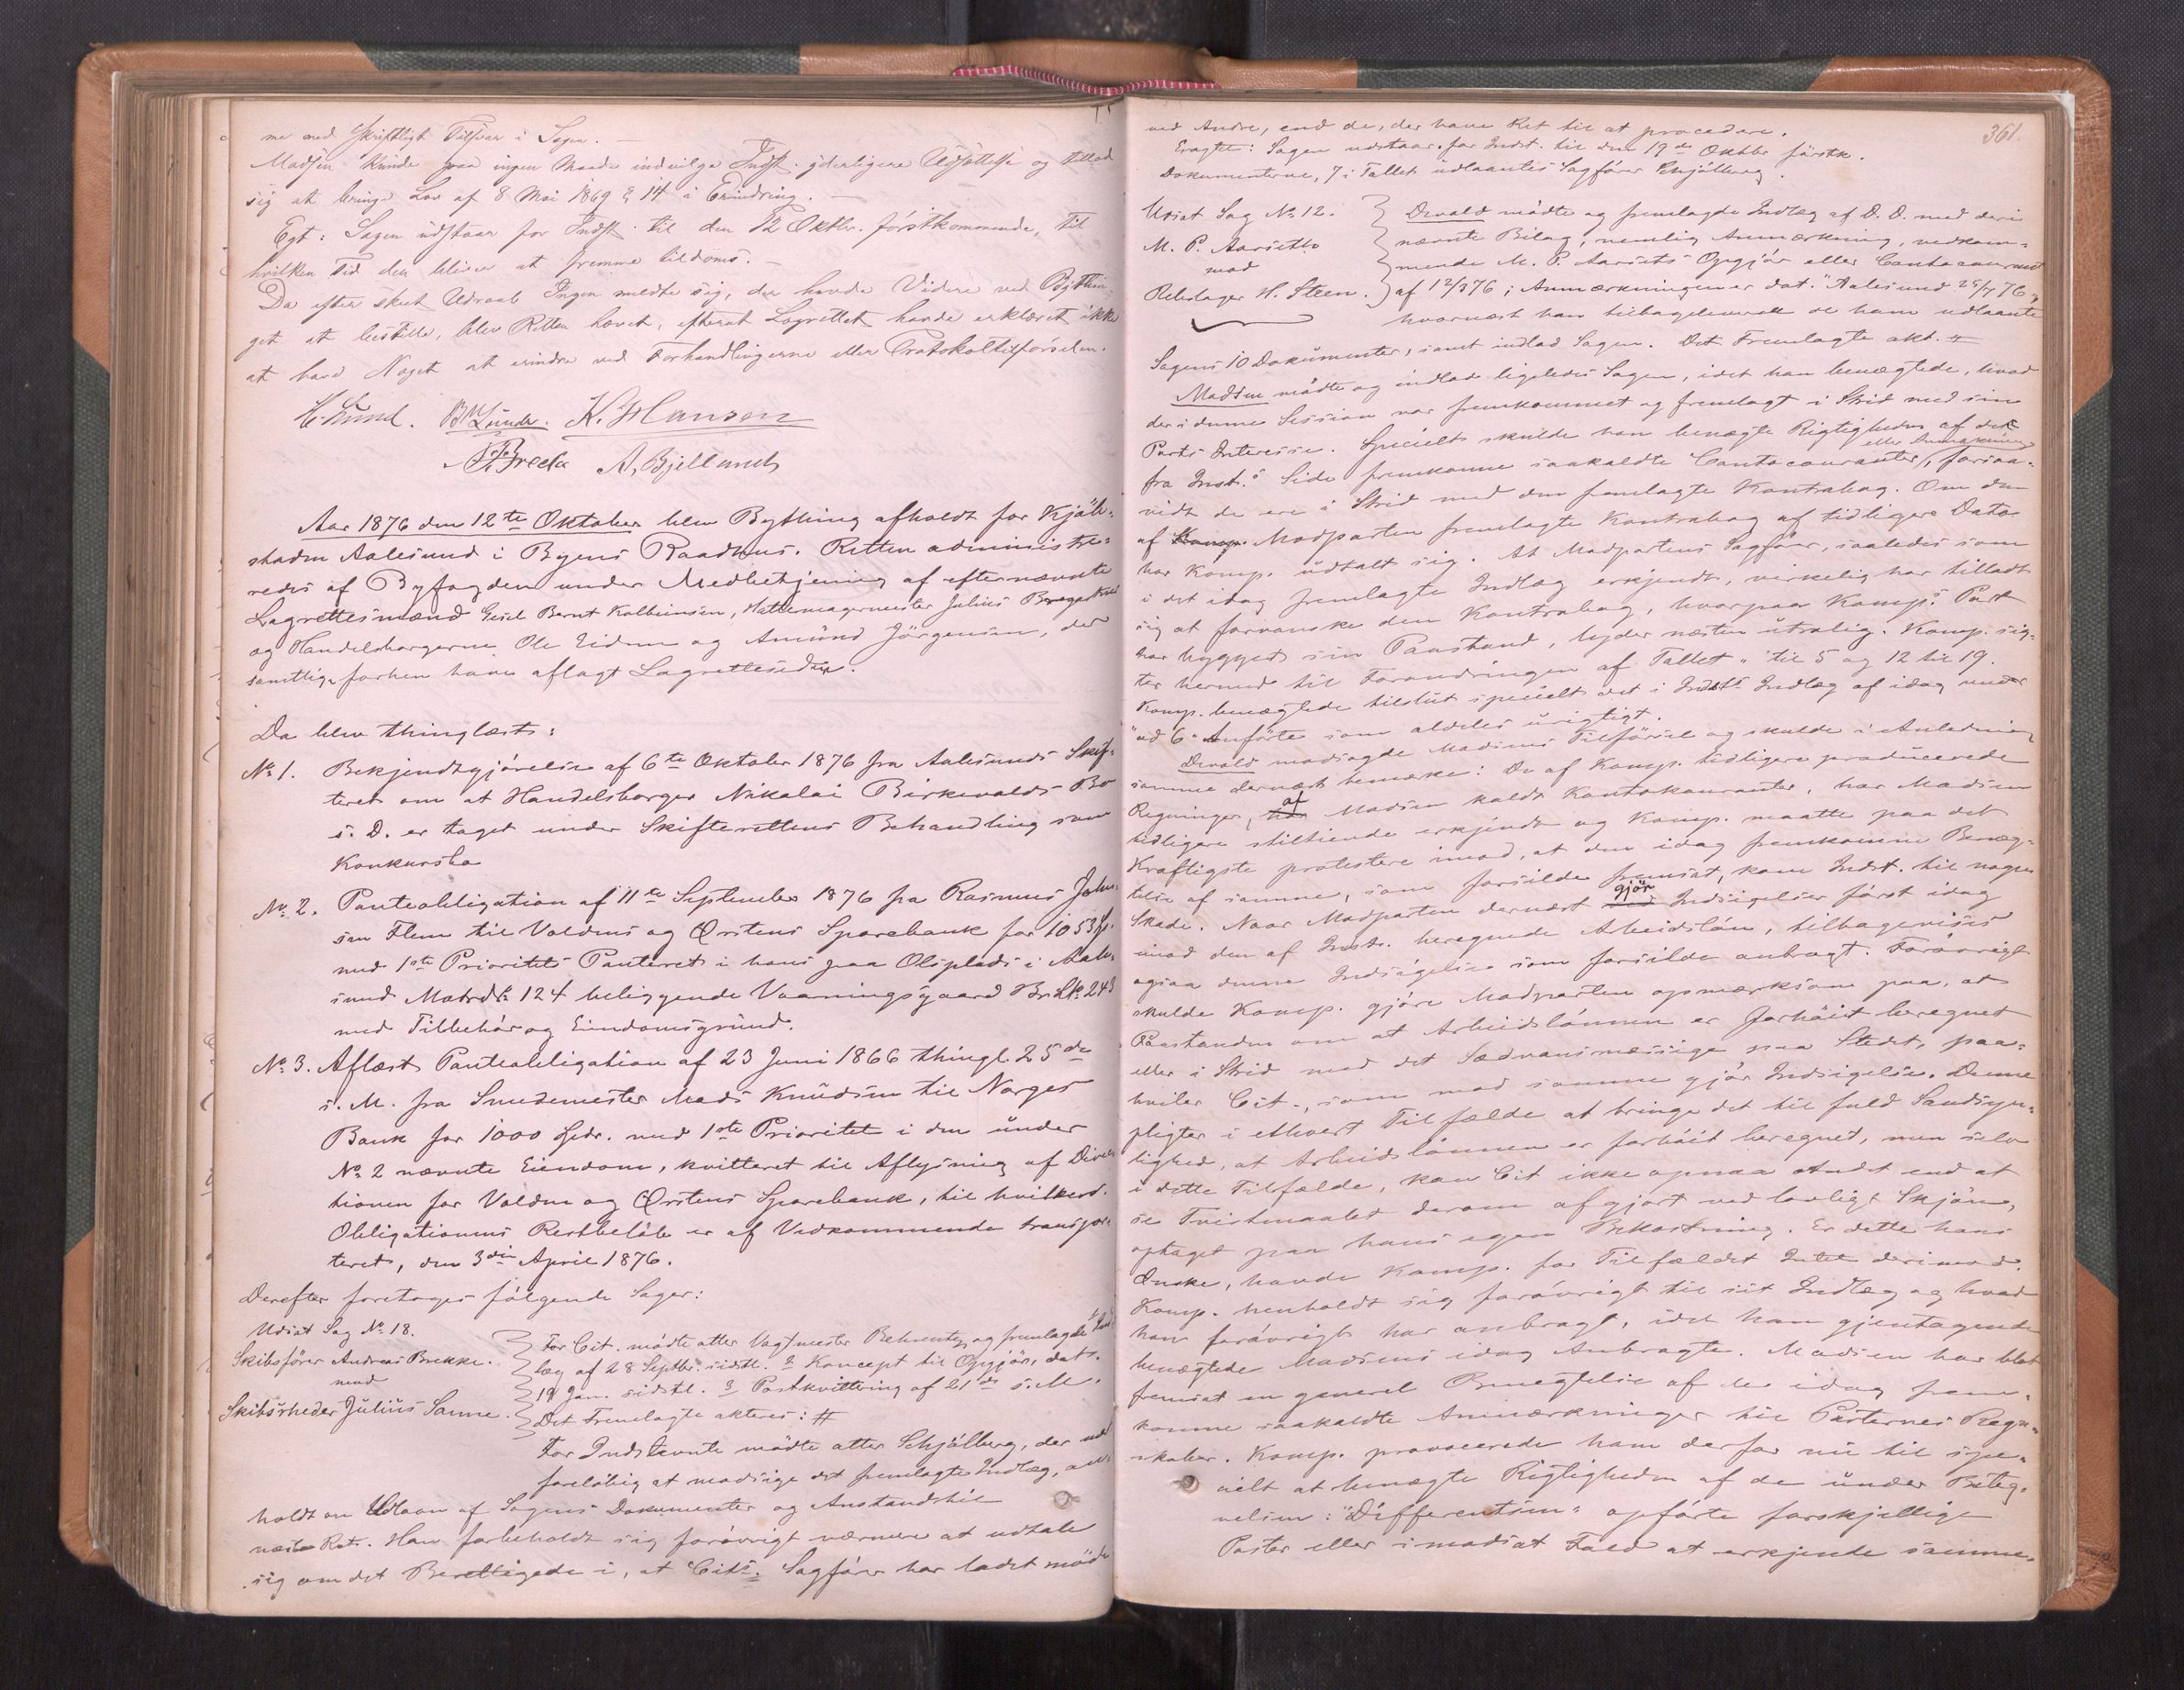 me med skriftligt Tilsvar i Sagen. —
Madsen kunde paa ingen Maade indvilge Indst. yderligere Udsættelse og tillod
sig at bringe Lov af 8 Mai 1869 § 14 i Erindring. —
Egt: Sagen udstaar for Indst. til den 12 Oktbr. förstkommende, til
hvilken Tid den bliver at fremme tildoms. —
Da efter skeet Udraab Ingen meldte sig, der havde Videre ved Bythin-
get at bestille, blev Retten hævet, efterat Lagrettet havde erklæret ikke
at have Noget at erindre ved Forhandlingerne eller Protokoltilförselen.
B Lunde. K. Hansen
A, Bjellund
Aar 1876 den 12te Oktober blev Bything afholdt for Kjöb-
staden Aalesund i Byens Raadhus. Retten administre-
redes af Byfogden under Medbetjening af efternævnte
Lagrettesmænd Gesel Bernt Kolbeinsen, Hattemagermester Julius
og Handelsborgerne Ole Eidem og Amund Jörgensen, der
samtlige forhen have aflagt Lagretteseden.
Da blev thinglæst:
No 1. Bekjendtgjörelse af 6te Oktober 1876 fra Aalesunds Skif-
teret om at Handelsborger Nikolai Birkevolds Bo
s. D. er taget under Skifterettens Behandling som
Konkursbo
No 2. Panteobligation af 11te September 1876 fra Rasmus John-
sen Flem til Voldens og Örstens Sparebank for 1053
med 1ste Prioritets Panteret i hans paa Olsplads i Aale-
sund Matrd No 124 beliggende Vaaningsgaard Br No 243
med Tilbehör og Eiendomsgrund.
No 3. Aflæst Panteobligation af 23 Juni 1866 thingl. 25de
s. M. fra Smedemester Mads Knudsen til Norges
Bank for 1000 Spdr. med 1ste Prioritet i den under
No 2 nævnte Eiendom, kvitteret til Aflysning af Direk-
tionen for Volden og Örstens Sparebank, til hvilken
Obligationens Restbelöb er af Vedkommende transpor-
teret, den 3die April 1876.
Derefter foretoges fölgende Sager:
Udsat Sag No 18.
Skibsförer Andreas Brekke.
mod
Skibsrheder Julius Sanne.
For Cit. mödte atter Vagtmester Behrentz og fremlagde 1 Ind-
læg af 28 Septbr. sidstl. 2 Koncept til Opgjör, dat.
19 Jan. sidstl. 3 Postkvittering af 21de s. M.
Det Fremlagte akteres: #
For Indstevnte mödte atter Schjölberg, der med
foreløbig at modsige det fremlagte Indlæg, an-
holdt om Udlaan af Sagens Dokumenter og Anstand til
næste Ret. Han forbeholdt sig forövrigt nærmere at udtale
sig om det Berettigede i, at Cits. Sagförer har ladet möde
361.
ved Andre, end de, der have Ret til at procedere.
Eragtet: Sagen udstaar for Indst. til den 19de Oktbr förstk.
Dokumenterne, 7 i Tallet udlaantes Sagförer Schjölberg.
Udsat Sag No 12.
M. P. Aarseth
mod
Rebslager H. Steen.
Devold mödte og fremlagde Indlæg af D. D. med deri
nævnte Bilag, nemlig Anmærkning, vedkom-
mende M. P. Aarseths Opgjör eller Contocourant
af 12/3 76; Anmærkningen er dat. "Aalesund 25/4 76",
hvornæst han tilbageleverede de ham udlaante
Sagens 10 Dokumenter, samt indlod Sagen. Det Fremlagte akt. #
Madsen mödte og indlod ligeledes Sagen, idet han benægtede, hvad
der i denne Session var fremkommet og fremlagt i Strid med sin
Parts Interesse. Specielt skulde han benægte Rigtigheden af det
fra Indst.s Side fremkomne saakaldte Contocouranter eller Anmærkning, forsaa-
vidt de ere i Strid med den fremlagte Kontrabog. Om den
af Komp. Modparten fremlagte Kontrabog af tidligere Dato
har Komp. udtalt sig. At Modpartens Sagförer, saaledes som
i det idag fremlagte Indlæg erkjendt, virkelig har tilladt
sig at forvanske den Kontrabog, hvorpaa Komp.s Part
har bygget sin Paastand, lyder næsten utrolig. Komp. sig-
ter herved til Forandringen af Tallet " til 5 og 12 til 19.
Komp. benægtede tilslut specielt det i Indst.s Indlæg af idag under
"ad 6" Anförte som aldeles urigtigt.
Devold modsagde Madsens Tilförsel og skulde i Anledning
samme dernæst bemærke: De af Komp. tidligere producerede
Regninger, af Madsen kaldt Kontokouranter, har Madsen
tidligere stiltiende erkjendt og Komp. maatte paa det
Kraftigste protestere imod, at den idag fremkomne Benæg-
telse af samme, som forsilde fremsat, kom Indst. til nogen
Skade. Naar Modparten dernæst gjör Indsigelser först idag
imod den af Indst. beregnede Arbeidslön, tilbagevises
ogsaa denne Indsigelse som forsilde anbragt. Forövrigt
skulde Komp. gjöre Modparten opmærksom paa, at
Paastanden om at Arbeidslönnen er forhöit beregnet
eller i Strid med det Sædvansmæssige paa Stedet, paa-
hviler Cit., som mod samme gjör Indsigelse. Denne
pligter i ethvert Tilfælde at bringe det til fuld Sandsyn-
lighed, at Arbeidslönnen er forhöit beregnet, men selv
i dette Tilfælde, kan Cit ikke opnaa Andet end at
se Tvistmaalet derom afgjort ved lovligt Skjön,
optaget paa hans egen Bekostning. Er dette hans
Önske, havde Komp. for Tilfældet Intet derimod.
Komp. henholdt sig forövrigt til sit Indlæg og hvad
han forövrigt har anbragt, idet han gjentagende
benægtede Madsens idag Anbragte. Madsen har blot
fremsat en generel Benegtelse af de idag frem-
komne saakaldte Anmærkninger til Parternes Regn-
skaber. Komp. provocerede ham derfor nu til spe-
cielt at benægte Rigtigheden af de under Beteg-
nelsen: "Differentsen" opförte forskjellige
Poster eller i modsat Fald at erkjende samme.